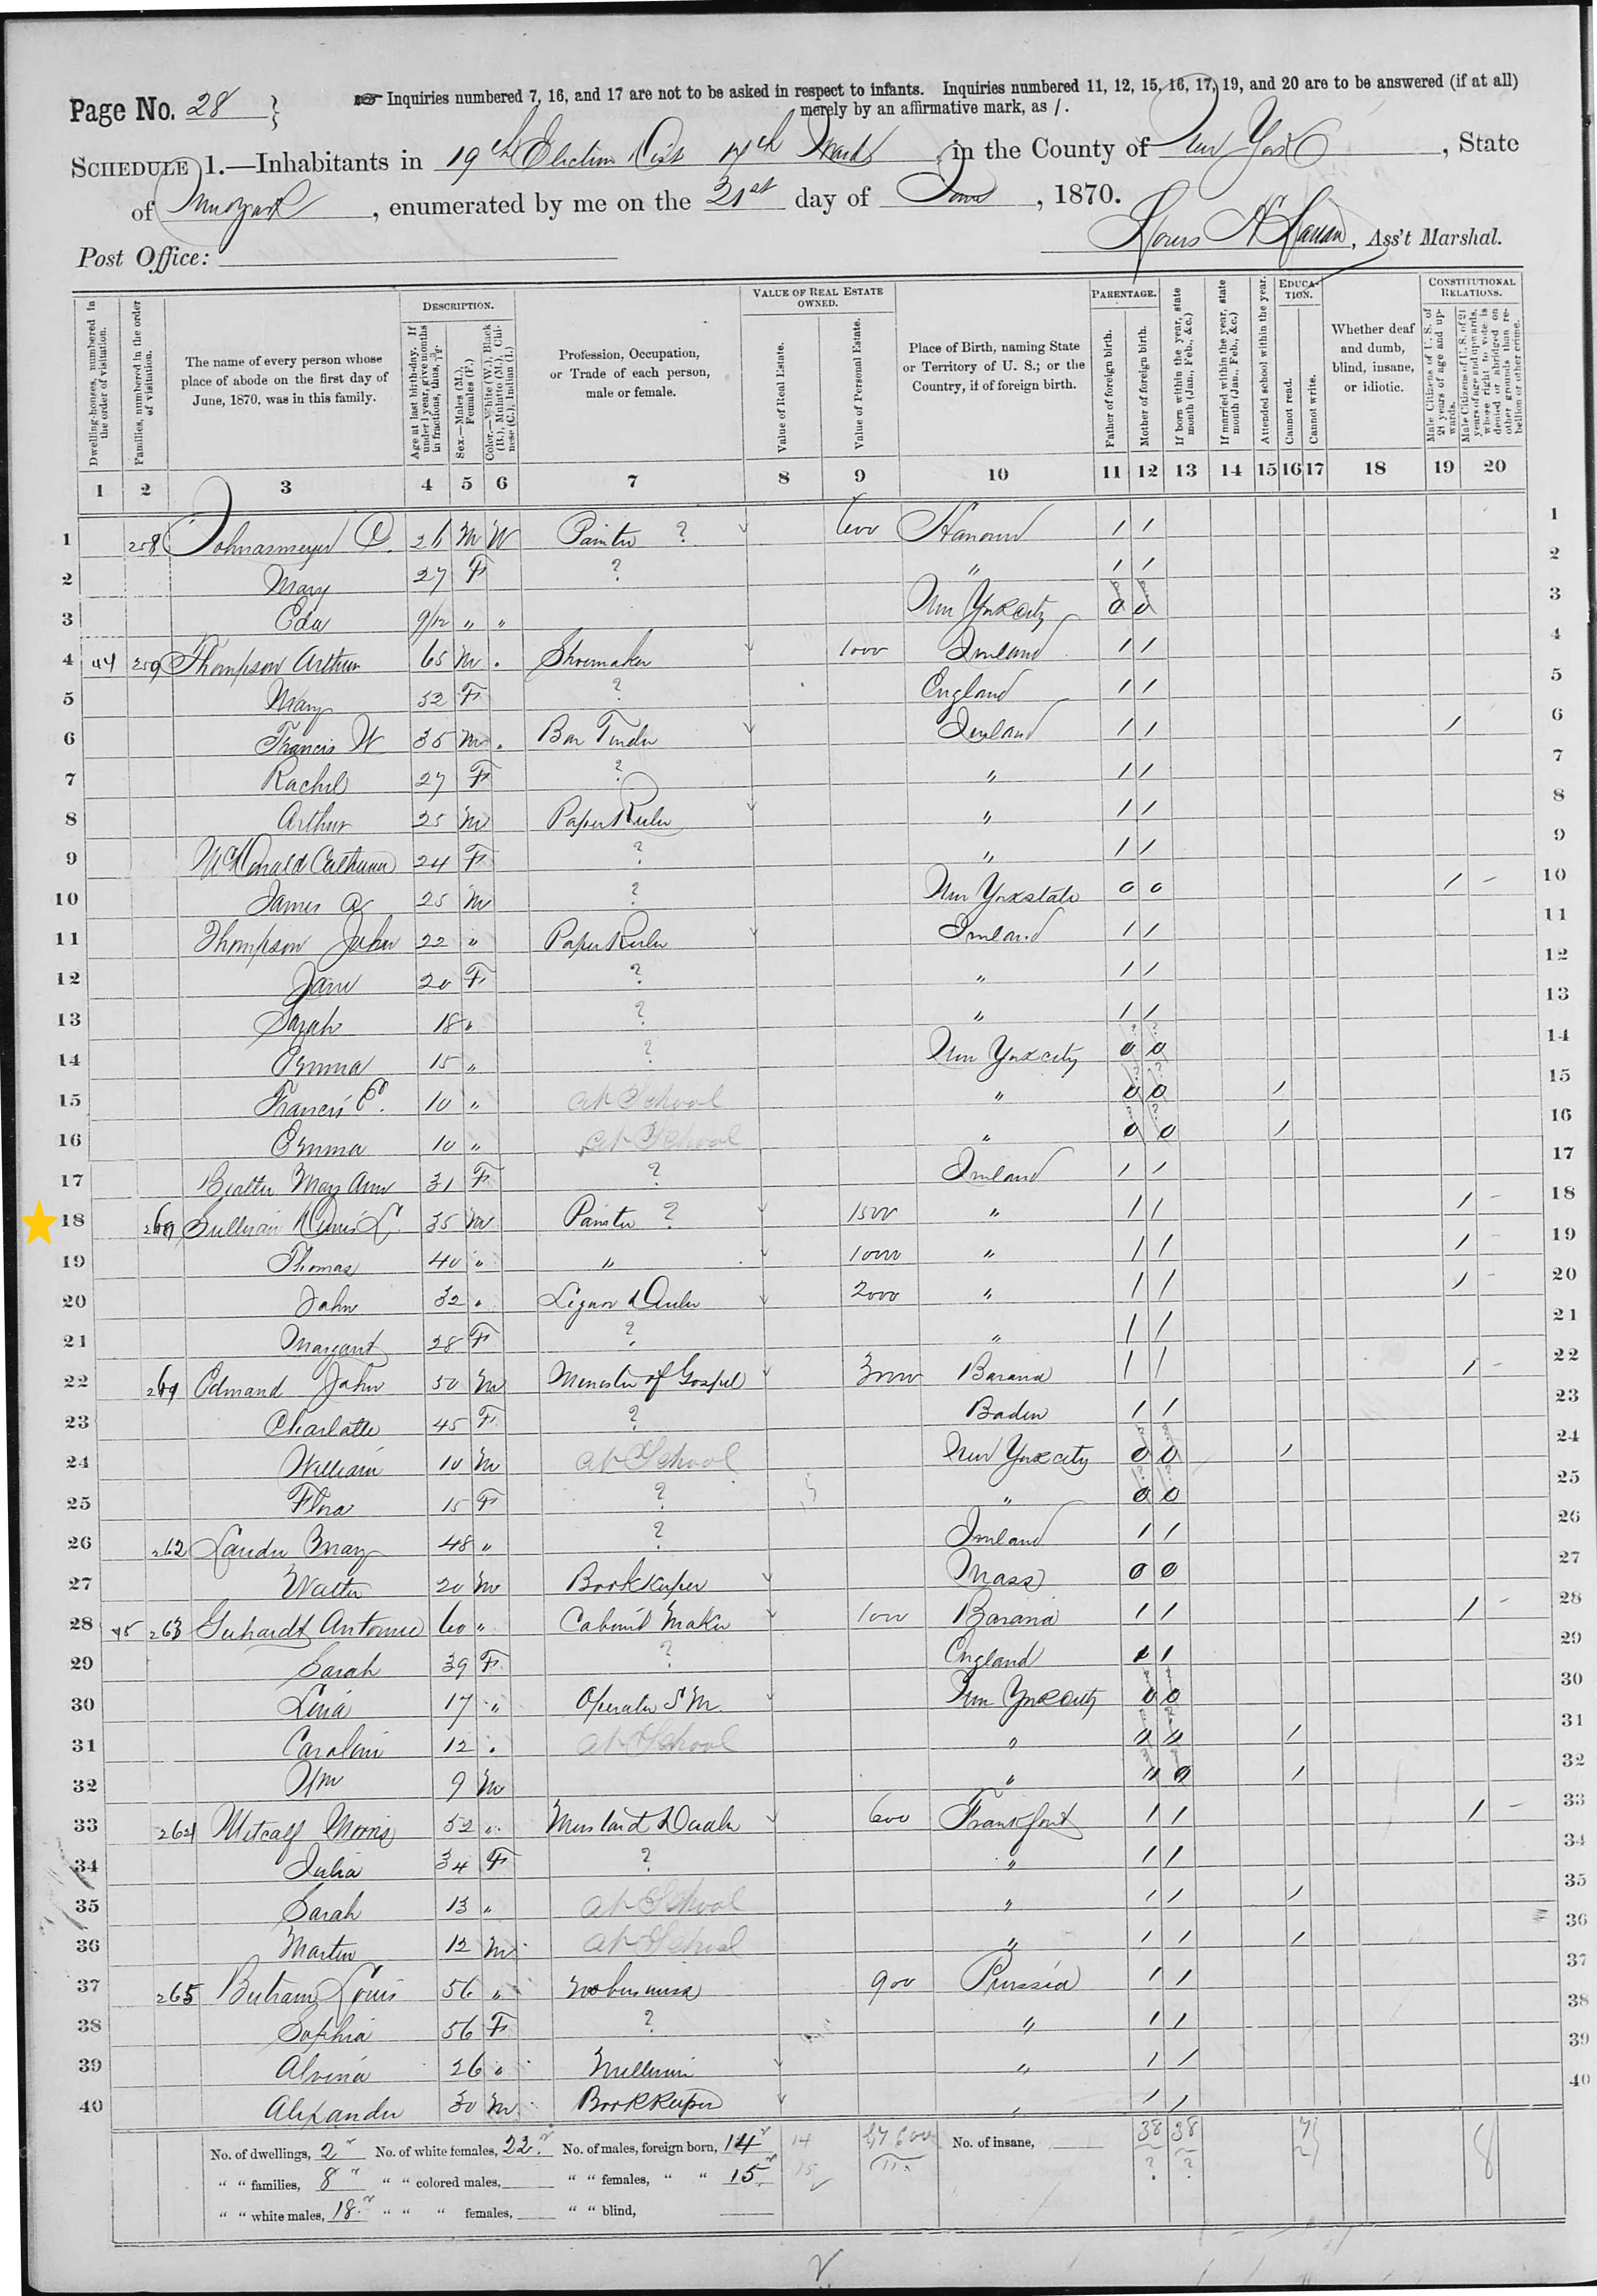 Page No. 28
☞ Inquiries numbered 7, 16, and 17 are not to be asked in respect to infants. Inquiries numbered 11, 12, 15, 16, 17, 19, and 20 are to be answered (if at all)
merely by an affirmative mark, as /.
SCHEDULE 1.—Inhabitants in 19th Election Dist 17th Ward, in the County of New York, State
of New York, enumerated by me on the 21st day of June, 1870.
Post Office: , Ass't Marshal.
DESCRIPTION. VALUE OF REAL ESTATE OWNED. PARENTAGE. EDUCATION. CONSTITUTIONAL RELATIONS.
Dwelling-houses, numbered in the order of visitation.
Families, numbered in the order of visitation.
The name of every person whose place of abode on the first day of June, 1870, was in this family.
Age at last birth-day. If under 1 year, give months in fractions, thus, 3/12.
Sex.—Males (M.), Females (F.)
Color.—White (W.), Black (B.), Mulatto (M.), Chinese (C.), Indian (I.)
Profession, Occupation, or Trade of each person, male or female.
Value of Real Estate.
Value of Personal Estate.
Place of Birth, naming State or Territory of U. S.; or the Country, if of foreign birth.
Father of foreign birth.
Mother of foreign birth.
If born within the year, state month (Jan., Feb., &c.)
If married within the year, state month (Jan., Feb., &c.)
Attended school within the year.
Cannot read.
Cannot write.
Whether deaf and dumb, blind, insane, or idiotic.
Male Citizens of U. S. of 21 years of age and upwards.
Male Citizens of U. S. of 21 years of age and upwards, whose right to vote is denied or abridged on other grounds than rebellion or other crime.
1 2 3 4 5 6 7 8 9 10 11 12 13 14 15 16 17 18 19 20
1 258 C. 26 M W Painter ? 600 Hanover / / 1
2 Mary 27 F ? " / / 2
3 Eda 9/12 " " New York City 0 0 3
4 44 259 Thompson Arthur 65 M Shoemaker 1000 Ireland / / 4
5 Mary 52 F ? England / / 5
6 Francis W 35 M Bar Tender Ireland / / / 6
7 Rachel 27 F ? " / / 7
8 Arthur 25 M Paper Ruler " / / 8
9 McDonald Catharine 24 F ? " / / 9
10 James A 25 M ? New York state 0 0 / - 10
11 Thompson John 22 " Paper Ruler Ireland / / 11
12 Jane 20 F ? " / / 12
13 Sarah 18 " ? " / / 13
14 Emma 15 " ? New York city 0 0 14
15 Francis P. 10 " at School " 0 0 / 15
16 Emma 10 " at School " 0 0 / 16
17 Mary Ann 31 F ? Ireland / / 17
18 260 Sullivan Denis L. 35 M Painter ? 1500 " / / / - 18
19 Thomas 40 " " 1000 " / / / - 19
20 John 32 " Liquor Dealer 2000 " / / / - 20
21 Margaret 28 F ? " / / 21
22 261 Edmand John 50 M Minister of Gospel 3000 Bavaria / / / - 22
23 Charlotte 45 F ? Baden / / 23
24 William 10 M at School New York city 0 0 / 24
25 Flora 15 F ? " 0 0 25
26 262 Mary 48 " ? Ireland / / 26
27 Walter 20 M Bookkeeper Mass 0 0 27
28 45 263 Gerhardt Antonie 60 " Cabinet Maker 1000 Bavaria / / / - 28
29 Sarah 39 F ? England / / 29
30 Lena 17 " Operator S M. New York City 0 0 30
31 Caroline 12 " at School " " " / 31
32 Wm 9 M " " 0 / 32
33 264 Metcalf Morris 52 " Mustard Dealer 600 Frankfort / / / - 33
34 Julia 34 F ? " / / 34
35 Sarah 13 " at School " / / / 35
36 Martin 12 M at School " / / / 36
37 265 Butram Louis 56 " No business 900 Prussia / / 37
38 Sophia 56 F ? " / / 38
39 Alvina 26 " Milliner " / / 39
40 Alexander 30 M Bookkeeper " / / 40
No. of dwellings, 2 No. of white females, 22 No. of males, foreign born, 14 14 No. of insane, 38 38 8
" " families, 8 " " colored males, " " females, " " 15 15
" " white males, 18 " " " females, " " blind,